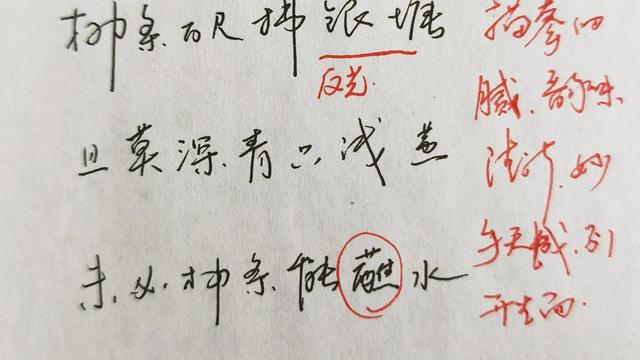 柳条百尺拂银塘
反光
且莫深青只浅黄
未必柳条能蘸水
描摹细
腻.韵味
清新.妙
手天成.别
开生面.